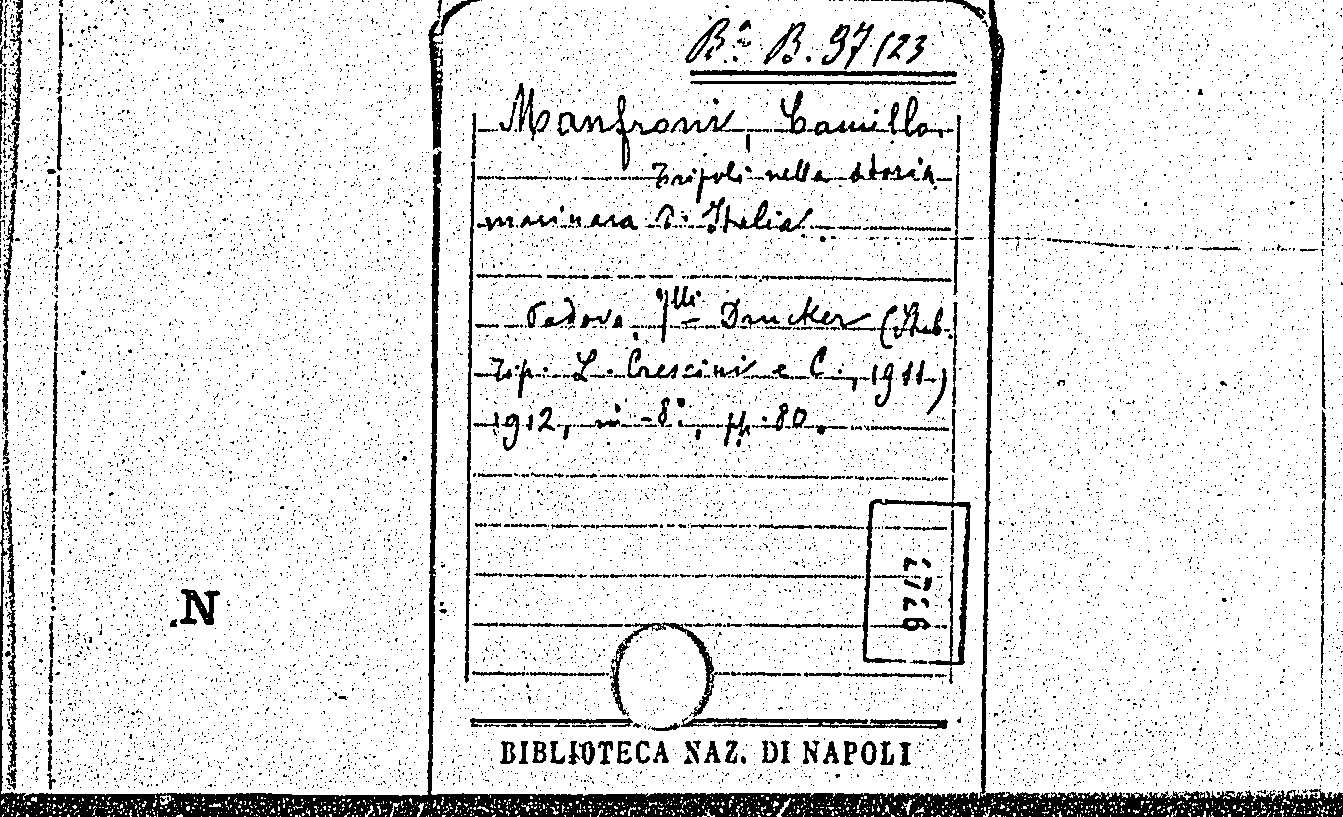 Bª. B. 97/23
Manfroni, Camillo.
Tripoli nella storia
marinara d'Italia.
Padova, f.lli Drucker (Stab.
Tip. L. Crescini e C., 1911)
1912, in-8°, pp. 80.
N
BIBLIOTECA NAZ. DI NAPOLI